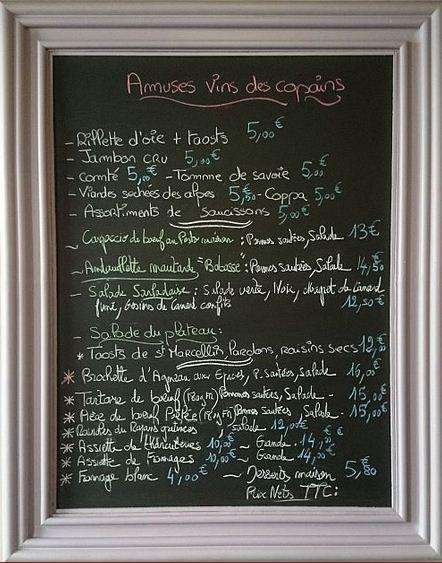 Amuses vins des copains
- Rillette d'oie + toasts 5,00€
- Jambon cru 5,00€
- comté 5,00€ - Tomme de savoie 5,00€
- Viandes sechées des alpes 5,50 - Coppa 5,00€
- Assortiments de Saucissons 5,00€
- Carpaccio de boeuf au Pesto maison : Pommes sautées, Salade 13€
- Andouillette moutarde "Bobosse" : Pommes sautées, Salade 14,50
- Salade Sarladaise : Salade verte, Noix, Magret de Canard
fumé, Gésiers de Canard confits 12,50€
- Salade du plateau :
* Toasts de st Marcellin, raisins secs 12,00€
* Brochette d'Agneau aux Epices, P. sautées, salade 16,00€
* Tartare de boeuf Pommes sautées, Salade - 15,00€
* Pièce de boeuf Pommes sautées, Salade - 15,00€
* Ravioles du Royans, salade 12,00€
* Assiette de 10,00€ ~ Grande - 14,00€
* Assiette de Fromages 10,00€ ~ Grande 14,00€
* Fromage blanc 4,00€ ~ Desserts maison 5,80
Prix Nets TTC :